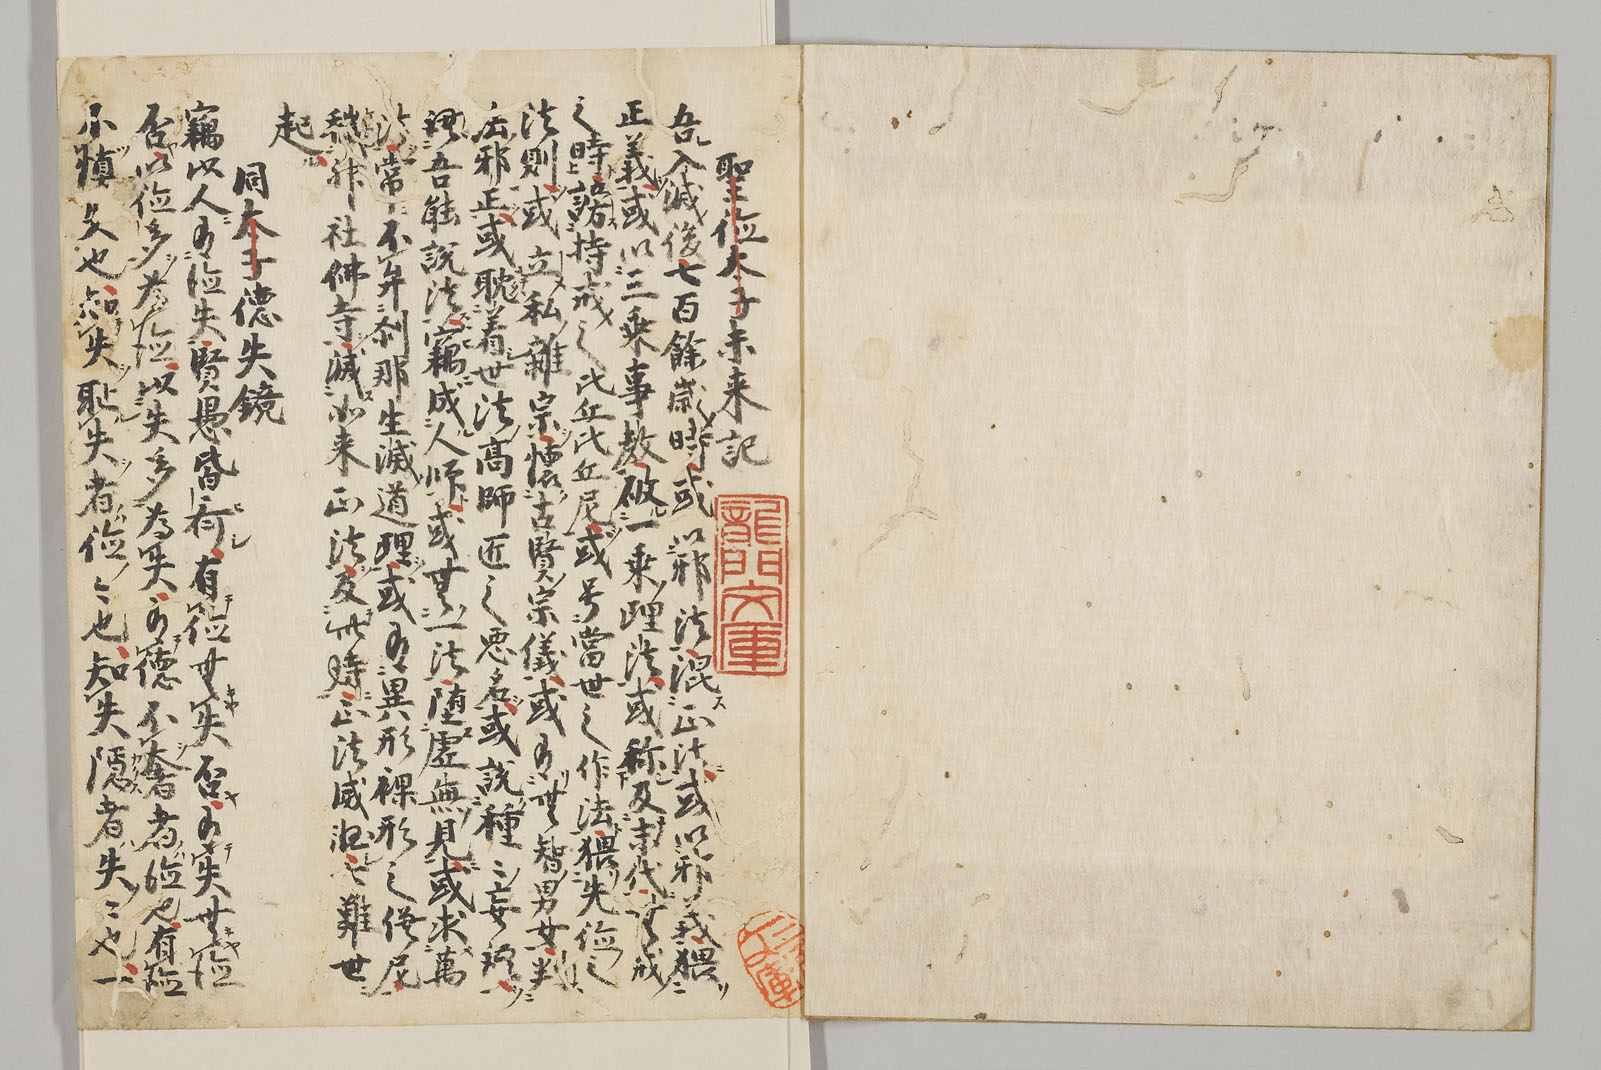 聖徳太子未来記
吾入滅後七百餘歳時或以邪法混正法或以邪義猥
正義或以三乗事教破一乗理法或称及末代無戒
之時謗持戒之比丘比丘尼或号當世之作法猥先徳之
法則或立私雜宗懐古賢宗儀或有無智男女判
法邪正或耽着世法高師匠之悪名或説種〻妄語
謂吾能説法竊成人師或無一法堕虚無見或求萬
法常不弁刹那生滅道理或有異形裸形之僧尼
穢神社佛寺滅如来正法及此時正法威泯乱難世
起
同太子徳失鏡
竊以人有徳失賢愚皆有徳無失否有失無徳
否以徳多為徳以失多為失有徳不奢者徳也有徳
不慎失也知失恥失者徳〻也知失隠者失〻也一
龍門文庫